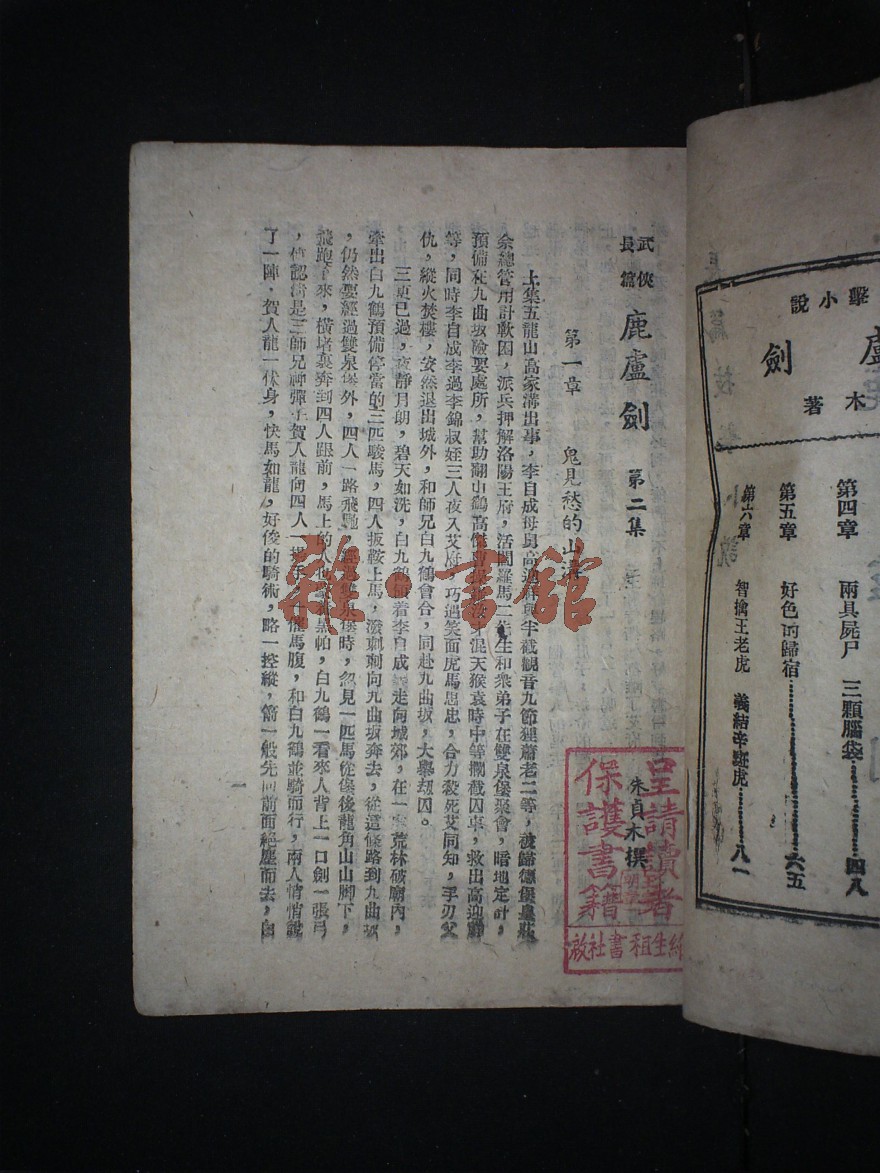 擊小說
盧
劍
木著
第四章 兩具屍尸 三顆腦袋 四八
第五章 好色的歸宿 六五
第六章 智擒王老虎 義結辛斑虎 八一
武俠
長篇
鹿盧劍 第二集
朱貞木撰
第一章 鬼見愁的山溝
上集五龍山高家溝出事，李自成母舅高迎祥與半截觀音九節狸蕭老二等，被歸德堡皇莊
余總管用計軟困，派兵押解洛陽王府，活閻羅馬二先生和衆弟子在雙泉堡聚會，暗地定計，
預備在九曲坂險要處所，幫助翻山鷂高傑混天猴袁時中等攔截囚車，救出高迎祥
等，同時李自成李過李錦叔姪三人夜入艾府，巧遇笑面虎馬思忠，合力殺死艾同知，手刃父
仇，縱火焚樓，安然退出城外，和師兄白九鶴會合，同赴九曲坂，大舉刼囚。
三更已過，夜靜月朗，碧天如洗，白九鶴領着李自成走向城郊，在一荒林破廟內，
牽出白九鶴預備停當的三匹駿馬，四人扳鞍上馬，潑刺刺向九曲坂奔去，從這條路到九曲坂
，仍然要經過雙泉堡外，四人一路飛馳，經過雙泉堡時，忽見一匹馬從堡後龍角山山脚下，
飛跑下來，橫堵裏奔到四人跟前，馬上的人黑帕，白九鶴一看來人背上一口劍一張弓
，便認淸是三師兄神彈子賀人龍向四人一招手，催馬腹，和白九鶴並騎而行，兩人悄悄說
了一陣，賀人龍一伏身，快馬如龍，好俊的騎術，略一控縱，箭一般先向前面絕塵而去，白
一
呈請讀者
保護書籍
生租書社啟
雜·書館